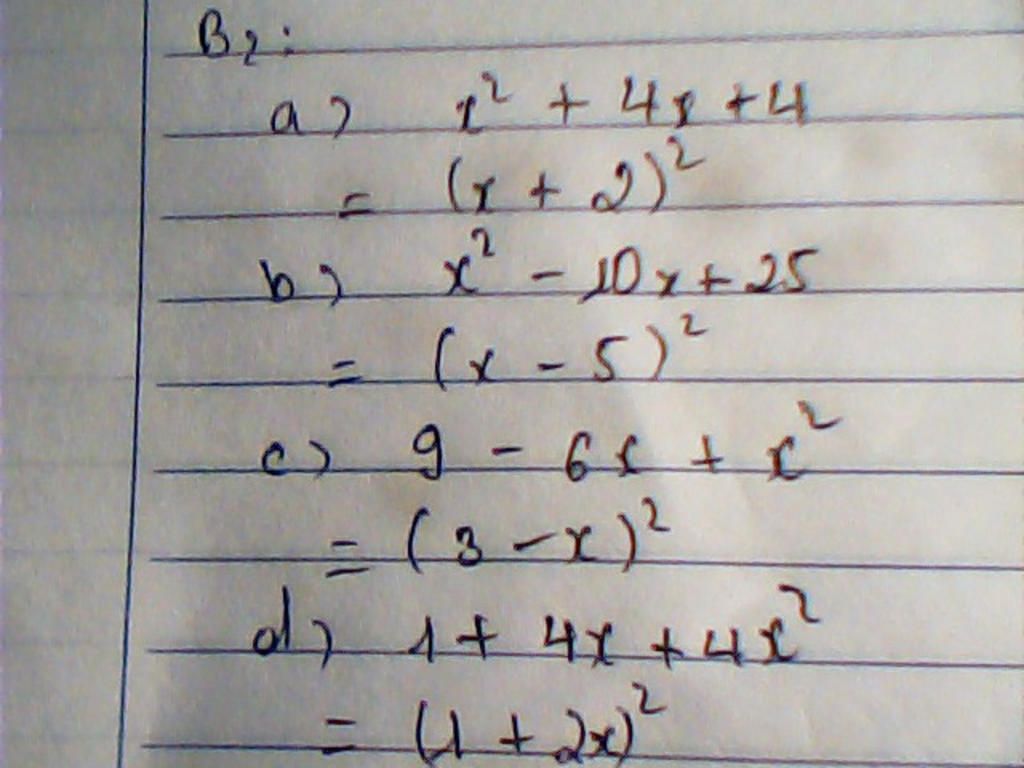 B2:
a) x² + 4x + 4
= (x + 2)²
b) x² - 10x + 25
= (x - 5)²
c) 9 - 6x + x²
= (3 - x)²
d) 1 + 4x + 4x²
= (1 + 2x)²